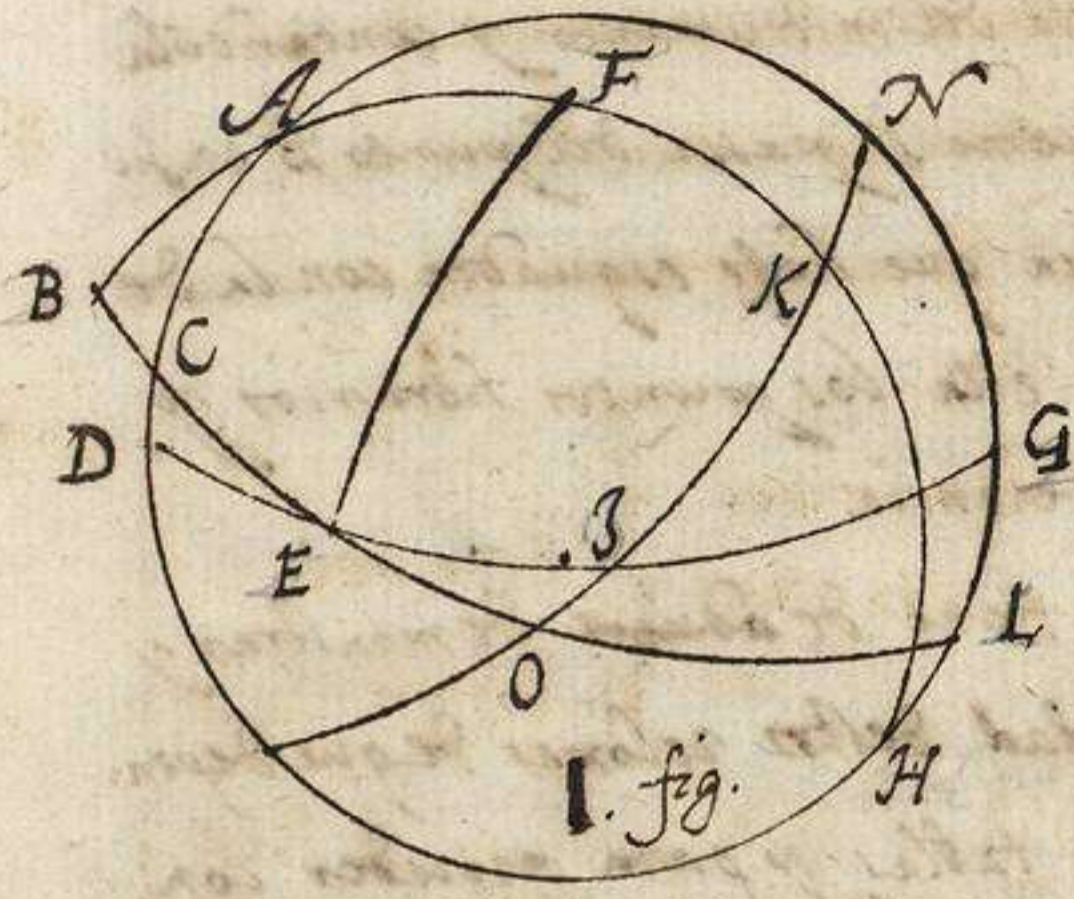 A
F
N
B
K
C
D
G
E
L
O
H
1. fig.